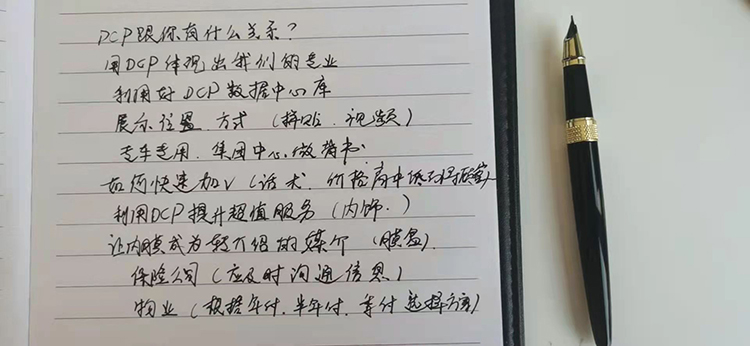 DCP跟你有什么关系?
用DCP体现出我们的专业
利用好DCP数据中心库
展示位置、方式(拼贴、视频)
专车专用、集团中心做背书
如何快速加V(话术、价格高中低
利用DCP提升超值服务(内饰、)
让内膜成为转介绍的媒介(膜盒)、
保险公司(应及时沟通信息)
物业(根据年付、半年付、季付选择方案)